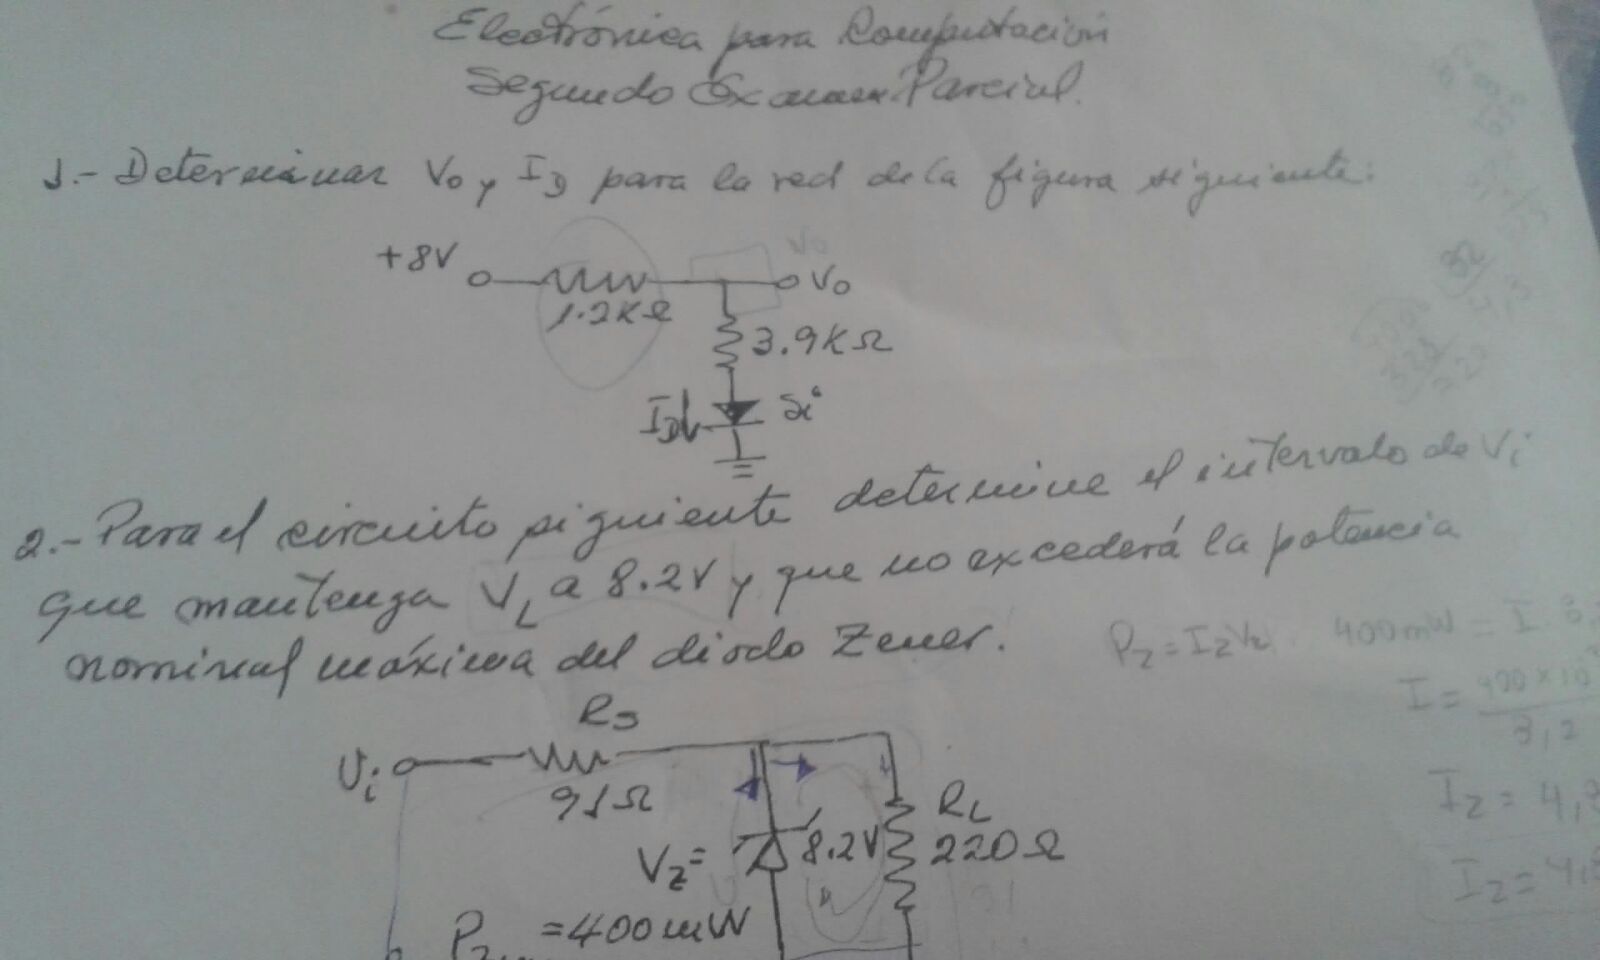 Electrónica para Computación
Segundo Examen Parcial.
1.- Determinar Vo y ID para la red de la figura siguiente:
Vo
+8V
Vo
1.2KΩ
3.9KΩ
ID
Si
2.- Para el circuito siguiente determine el intervalo de Vi
que mantenga VL a 8.2V y que no excederá la potencia
nominal máxima del diodo Zener.
PZ = IZVZ. 400mW = I.8,
I = 400x10
IZ = 4,
IZ = 4,
RS
Vi
91Ω
RL
VZ=
8.2V
220Ω
PZ
=400mW